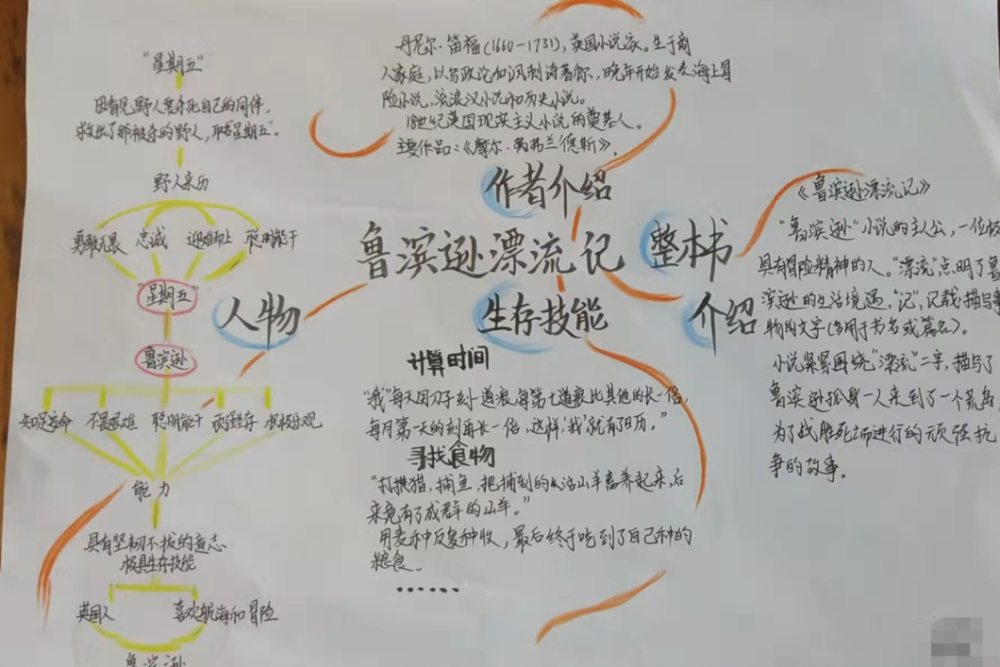 鲁滨逊漂流记
作者介绍
丹尼尔·笛福(1660-1731),英国小说家。生于商
人家庭,以写政论和讽刺诗著称,晚年开始发表海上冒
险小说,流浪汉小说和历史小说。
18世纪英国现实主义小说的奠基人。
主要作品:《摩尔·弗兰德斯》。
整本书
介绍
《鲁滨逊漂流记》
"鲁滨逊"小说的主人公,一位极
具有冒险精神的人。"漂流"点明了鲁
滨逊的生活境遇,"记",记载描写事
物的文字(多用于书名或篇名)。
小说紧紧围绕"漂流"二字,描写了
鲁滨逊孤身一人来到了一个荒岛
为了战胜死亡而进行的顽强抗
争的故事。
生存技能
计算时间
"我"每天因刀子刻一道痕,每第七道痕比其他的长一倍,
每月第一天的刻再长一倍,这样,'我'就有了日历。"
寻找食物
"打携猎,捕鱼,把捕到的の活山羊畜养起来,后
来竟有了成群的山羊。"
用麦种反复种收,最后终于吃到了自己种的
粮食。
······
人物
"星期五"
因看见野人要杀死自己的同伴,
救出了那被杀的野人,取名星期五"。
野人来历
勇敢无畏 忠诚 迎难而上 聪明能干
"星期五"
鲁滨逊
知足安命 不畏艰难 聪明能干 顽强生存 积极乐观
能力
具有坚韧不拔的意志
极具生存技能
英国人 喜欢航海和冒险
鲁滨逊